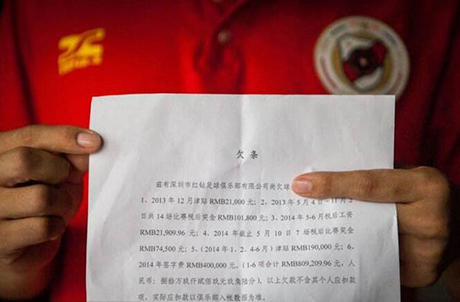 欠条
兹有深圳市红钻足球俱乐部有限公司尚欠球
1、2013年12月津贴RMB21,000元；2、2013年5月4日-11月2
日共14场比赛税后奖金RMB101,800元；3、2014年5-6月税后工资
RMB21,909.96元；4、2014年截止5月10日7场税后比赛奖金
RMB74,500元；5、(2014年1、2、4-6月)RMB190,000元；6、
2014年签字费RMB400,000元。(1-6项合计RMB809,209.96元，人
民币：捌拾万玖仟贰佰玖玖集陆分)，以上欠款不含其个人应扣款
项，实际应扣款以俱乐部入帐数据为准。